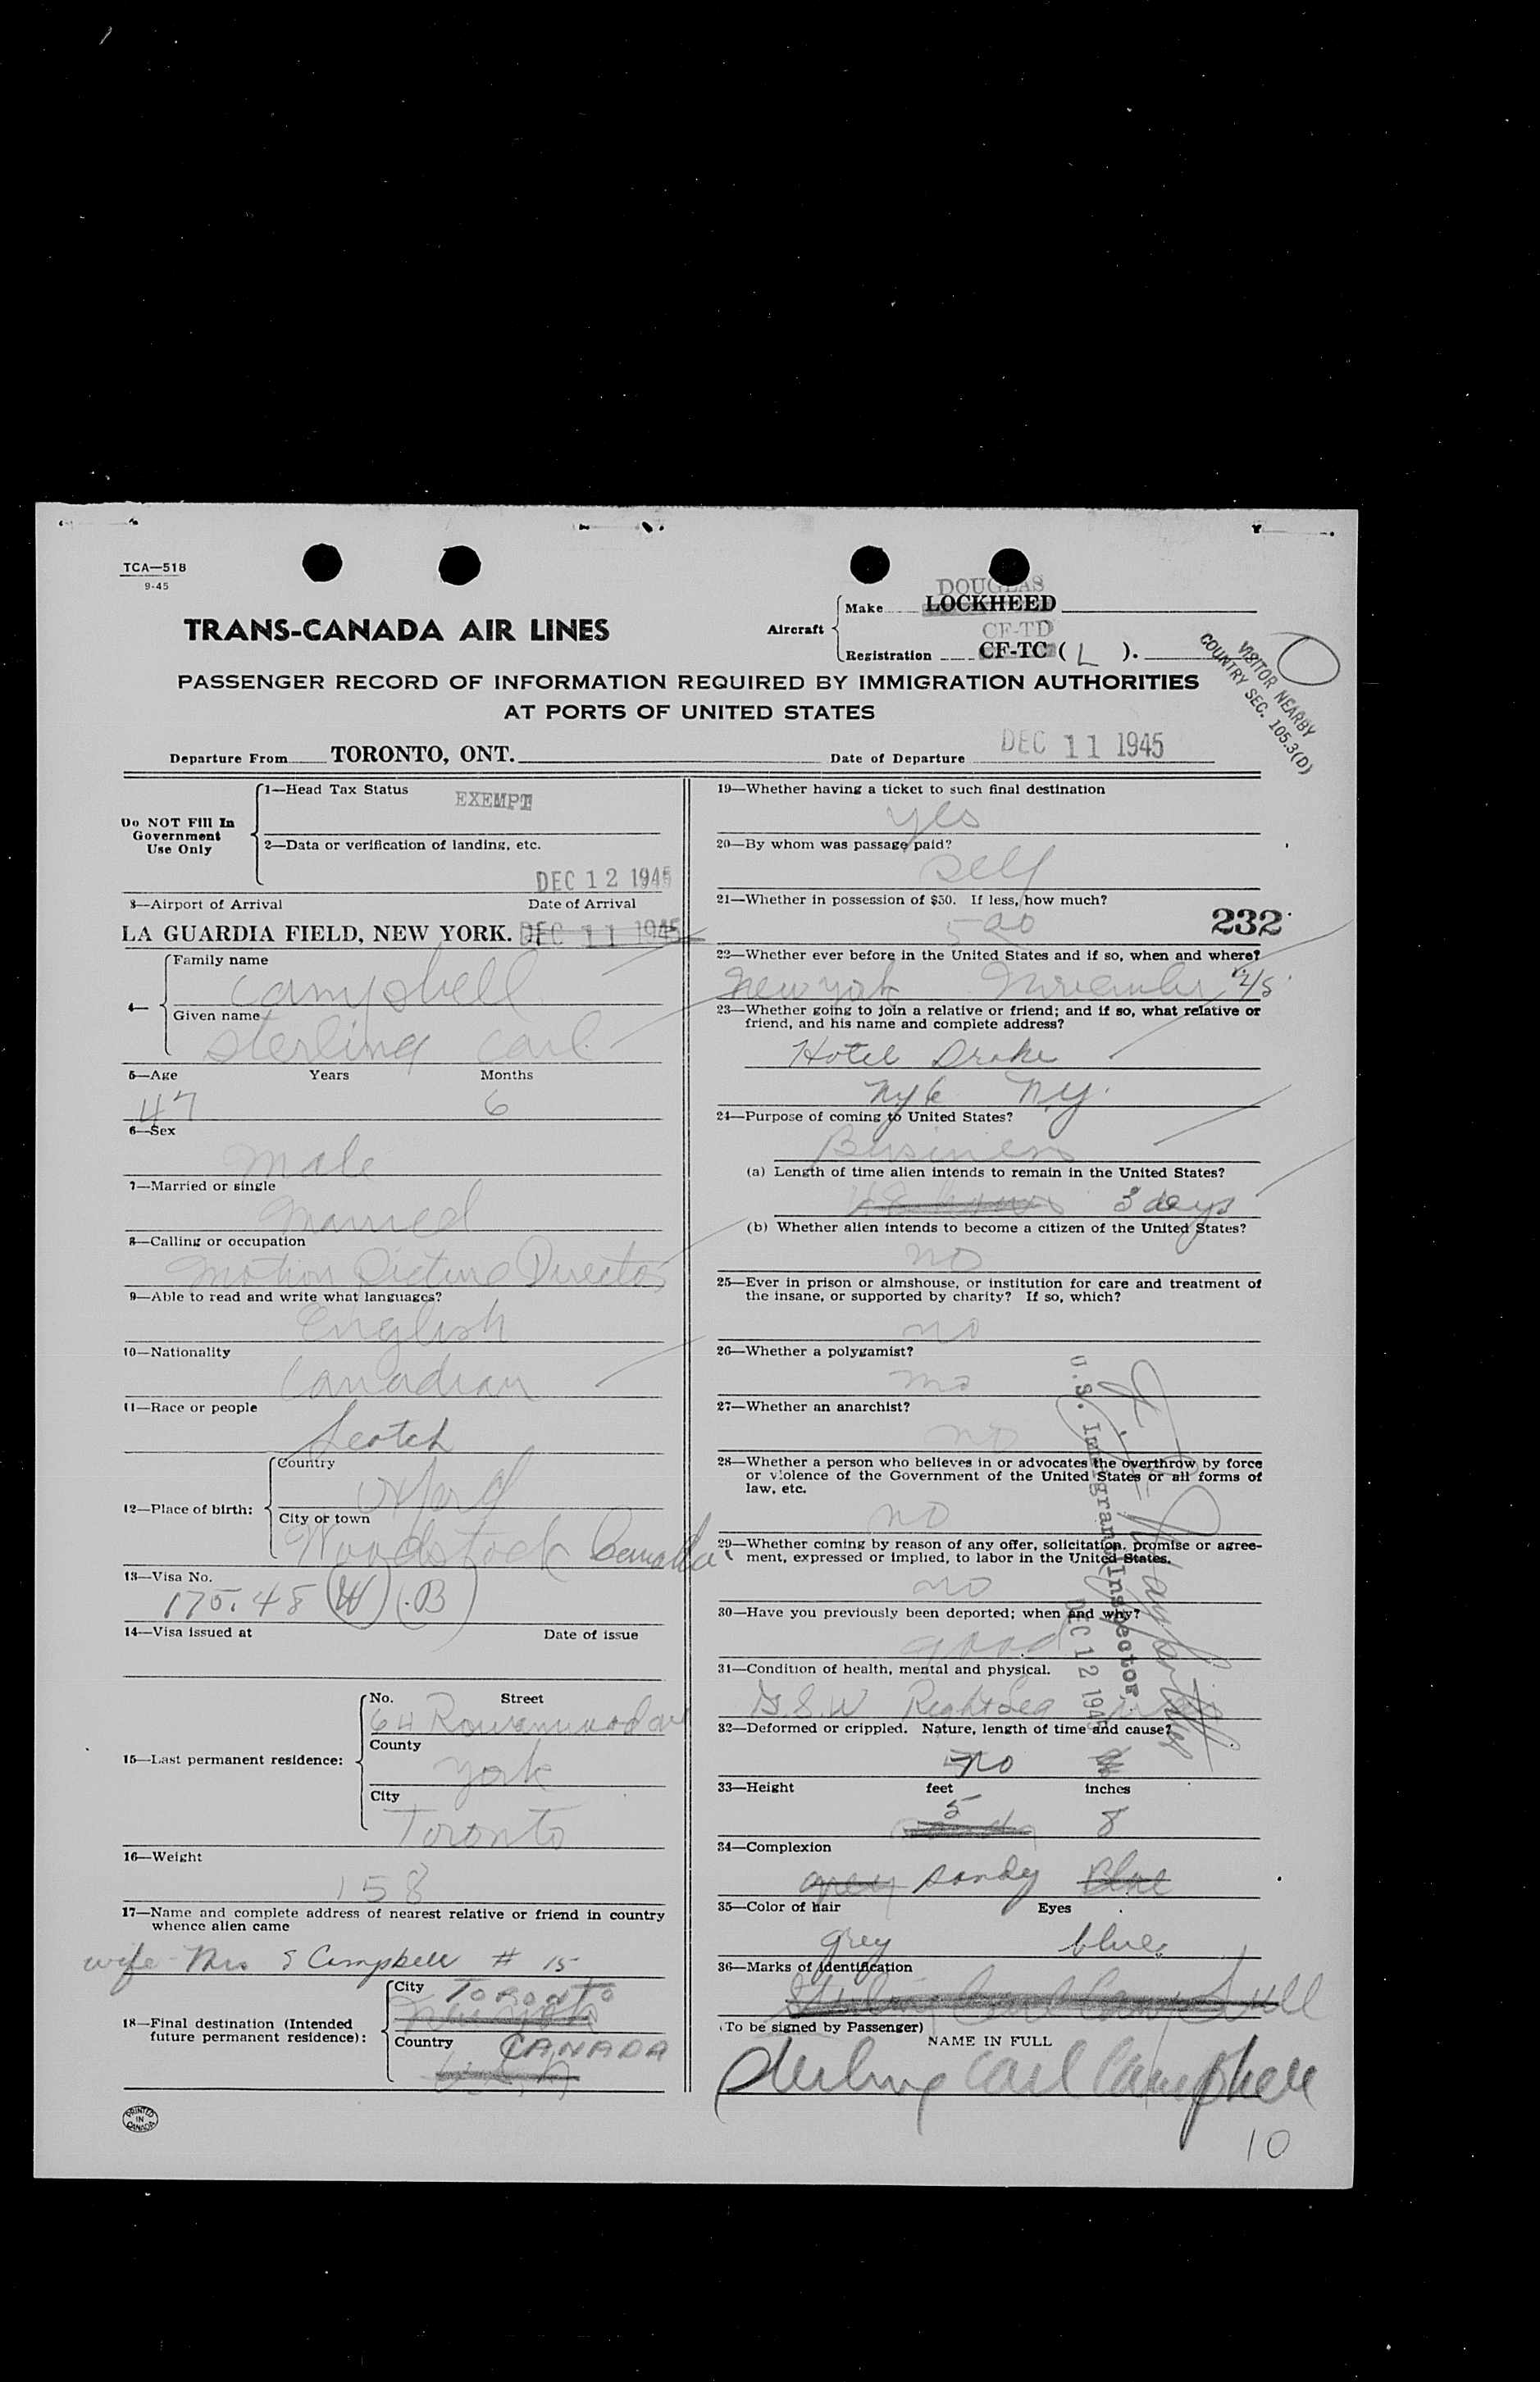 TCA—518
9-45
DOUGLAS
Make LOCKHEED
TRANS-CANADA AIR LINES
Aircraft
CF-TD
Registration CF-TC ( L ).
VISITOR NEARBY
COUNTRY SEC. 105.3(D)
PASSENGER RECORD OF INFORMATION REQUIRED BY IMMIGRATION AUTHORITIES
AT PORTS OF UNITED STATES
Departure From TORONTO, ONT.
Date of Departure DEC 11 1945
Do NOT Fill In
Government
Use Only
1—Head Tax Status EXEMPT
2—Data or verification of landing, etc.
DEC 12 1945
3—Airport of Arrival Date of Arrival
LA GUARDIA FIELD, NEW YORK. DEC 11 1945
4— Family name
Campbell
Given name
Sterling Carl
5—Age Years Months
47 6
6—Sex
Male
7—Married or single
Married
8—Calling or occupation
Motion Picture Director
9—Able to read and write what languages?
English
10—Nationality
Canadian
11—Race or people
Scotch
12—Place of birth:
Country
Oxford
City or town
Woodstock Canada
13—Visa No.
175.48 (W) (.B)
14—Visa issued at Date of issue
15—Last permanent residence:
No. Street
64 Rowanwood ave
County
York
City
Toronto
16—Weight
158
17—Name and complete address of nearest relative or friend in country
whence alien came
wife - Mrs S Campbell # 15
18—Final destination (Intended
future permanent residence):
City TORONTO
Country CANADA
U.S.A.
PRINTED
IN
CANADA
19—Whether having a ticket to such final destination
yes
20—By whom was passage paid?
self
21—Whether in possession of $50. If less, how much?
232
22—Whether ever before in the United States and if so, when and where?
New York November
23—Whether going to join a relative or friend; and if so, what relative or
friend, and his name and complete address?
Hotel Drake
NY.
24—Purpose of coming to United States?
Business
(a) Length of time alien intends to remain in the United States?
48 hours 3 days
(b) Whether alien intends to become a citizen of the United States?
no
25—Ever in prison or almshouse, or institution for care and treatment of
the insane, or supported by charity? If so, which?
no
26—Whether a polygamist?
no
27—Whether an anarchist?
no
28—Whether a person who believes in or advocates the overthrow by force
or violence of the Government of the United States or all forms of
law, etc.
no
29—Whether coming by reason of any offer, solicitation, promise or agree-
ment, expressed or implied, to labor in the United States.
no
30—Have you previously been deported; when and why?
good
31—Condition of health, mental and physical.
G.S.W Right Leg
32—Deformed or crippled. Nature, length of time and cause?
no
33—Height feet inches
5 8
34—Complexion
grey sandy Blue
35—Color of hair Eyes
grey blue
36—Marks of identification
Sterling Carl Campbell
(To be signed by Passenger)
NAME IN FULL
Sterling Carl Campbell
10
U.S. Immigrant Inspector.
DEC 12 1945